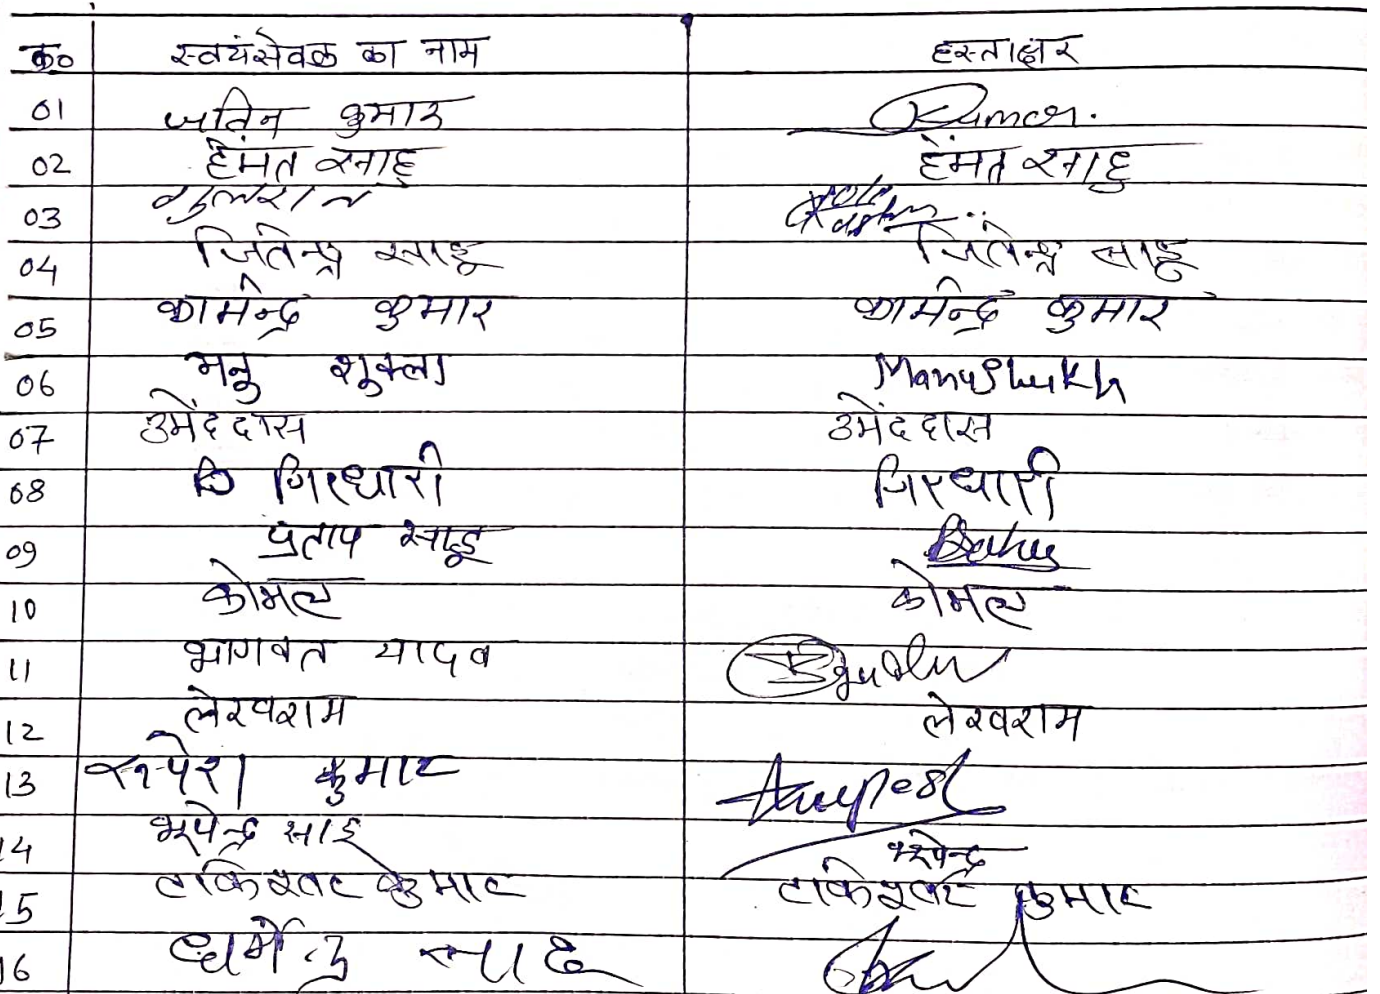 क्र० स्वयंसेवक का नाम हस्ताक्षर
01 जतिन कुमार Kumar.
02 हेमंत साहु हेमंत साहु
03 गुलशन
04 जितेन्द्र साहू जितेन्द्र साहू
05 कामेन्द्र कुमार कामेन्द्र कुमार
06 मनु शुक्ला Manu Shukla
07 उमेंददास उमेंददास
08 गिरधारी गिरधारी
09 प्रताप साहू Sahu
10 कोमल कोमल
11 भागवत यादव
12 लेखराम लेखराम
13 रुपेश कुमार Rupesh
14 भूपेन्द्र साहू भूपेन्द्र
15 टाकेश्वर कुमार टाकेश्वर कुमार
16 धर्मेन्द्र साहू